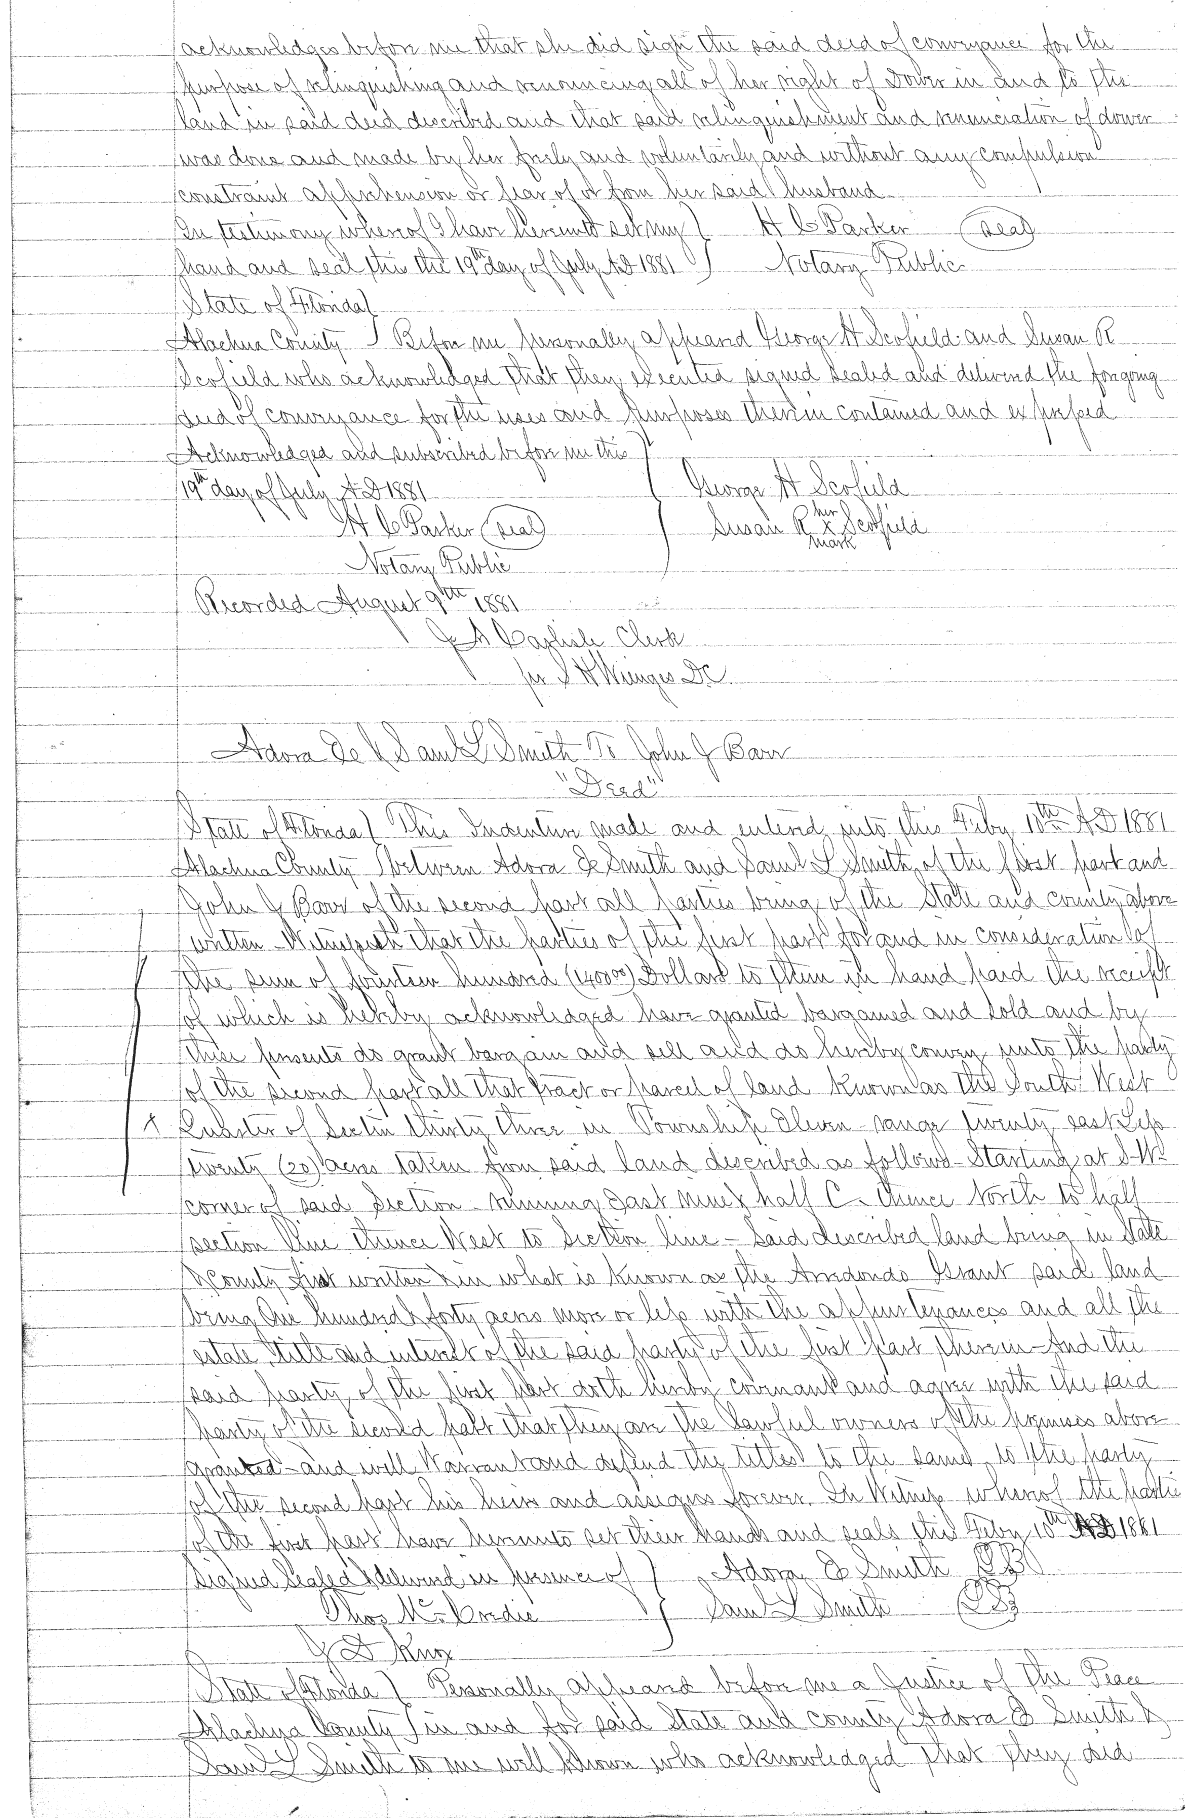 acknowledges before me that she did sign the said deed of conveyance for the
purpose of relinquishing and renouncing all of her right of Dower in and to the
land in said deed described and that said relinquishment and renunciation of dower
was done and made by her freely and voluntarily and without any compulsion
constraint apprehension or fear of or from her said husband
In testimony whereof I have hereunto set my } H C Parker (seal)
hand and seal this the 19th day of July AD 1881 } Notary Public
State of Florida }
Alachua County } Before me personally appeared George H Scofield and Susan R
Scofield who acknowledged that they executed signed sealed and delivered the forgoing
deed of conveyance for the uses and purposes therein contained and expressed
Acknowledged and subscribed before me this }
19th day of July AD 1881 } George H Scofield
H C Parker (seal) } Susan R her x mark Scofield
Notary Public
Recorded August 9th 1881
J A Carlisle Clerk
per S H Wienges DC
Adora E & Saml L Smith To John J Barr
"Deed"
State of Florida } This Indenture made and entered into this Feby 10th AD 1881
Alachua County } between Adora E Smith and Saml L Smith of the first part and
John J Barr of the second part all parties being of the State and county above
written - Witnesseth that the parties of the first part for and in consideration of
the sum of fourteen hundred (1400.00) Dollars to them in hand paid the receipt
of which is hereby acknowledged have granted bargained and sold and by
these presents do grant bargain and sell and do hereby convey unto the party
of the second part all that tract or parcel of land known as the South West
x Quarter of Section thirty three in Township Eleven range twenty east Less
twenty (20) acres taken from said land described as follows - Starting at S-W-
corner of said Section - running East nine & half C - thence North to half
section line thence West to Section line - said described land being in State
& County first written & in what is known as the Arredondo Grant said land
being One hundred & forty acres more or less with the appurtenances and all the
estate, title and interest of the said party of the first part therein - And the
said party of the first part doth hereby covenant and agree with the said
party of the second part that they are the lawful owners of the premises above
granted - and will Warrant and defend the titles to the same to the party
of the second part his heirs and assigns forever. In Witness whereof the parties
of the first part have hereunto set their hands and seals this Feby 10th AD 1881
Signed Sealed & delivered in presence of } Adora E Smith
Thos McCredie } Saml L Smith
J D Knox
State of Florida } Personally appeared before me a Justice of the Peace
Alachua County } in and for said State and county Adora E Smith &
Saml L Smith to me well known who acknowledged that they did